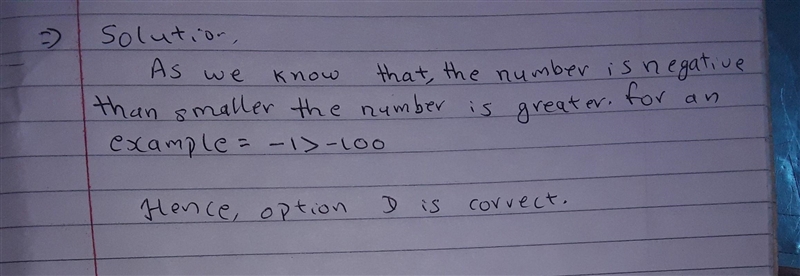 ⇒ Solution,
As we know that, the number is negative
than smaller the number is greater. for an
example = -1 > -100
Hence, option D is correct.